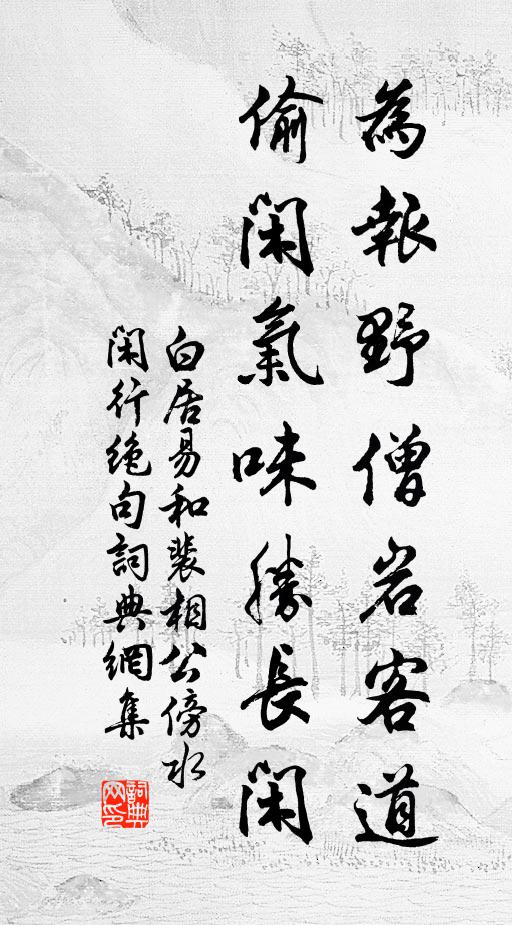 為報野僧岩客道
偷閑氣味勝長閑
白居易和裴相公傍水
閑行绝句詞典網集
詞典网印